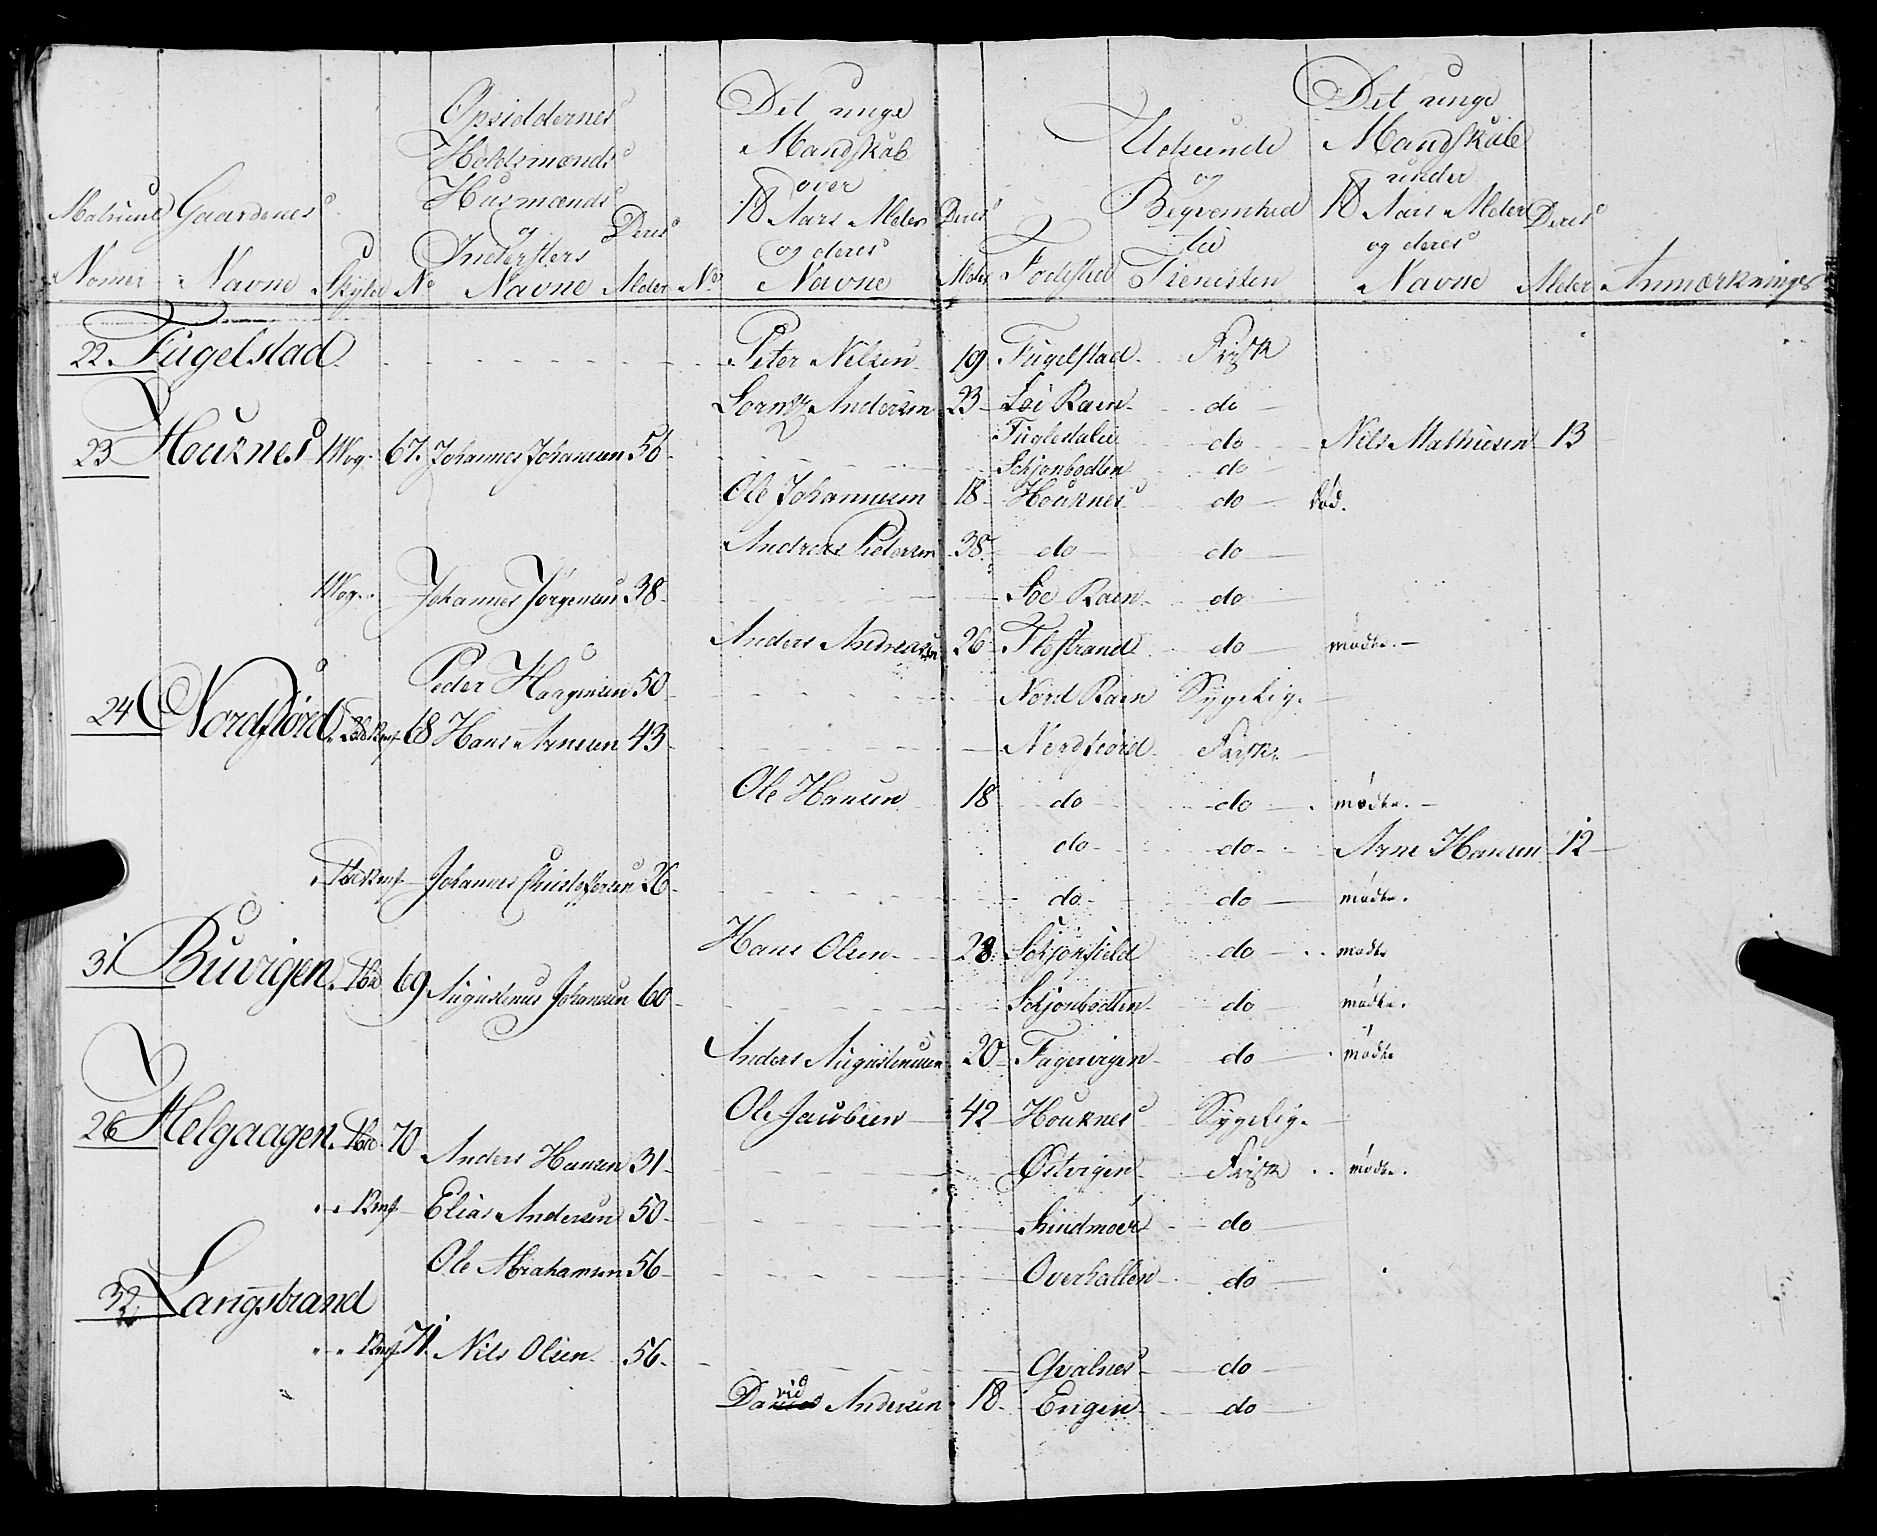 Matricul Nomer
Gaardenes Navne
Skyld
No
Opsiddernes Holdsmænds Husmænds og Indersters Navne
Deres Alder
No
Det unge Mandskab over 18 Aars Alder og deres Navne
Deres Alder
Fødested
Udseende og Beqvemhed til Tienesten
Det unge Mandskab under 18 Aars Alder og deres Navne
Deres Alder
Anmærkninger
22. Fugelstad. Peter Nelsen 19 Fugelstad Frisk
Lorntz Andersen 23 Soe Raen do
Fugledalen do Nils Mathiesen 13
23 Houknes 1 Wog. 67. Johannes Johansen 56 Schjonbodlen do
Ole Johannesen 18 Houknes do död.
Andreas Pedersen 38. do do
1 Wog. Johannes Jörgensen 38 Soe Raen do
Anders Andreasen 26 Flostrand do mödte.
Peder Haagensen 50 Nord Raen Sygelig.
24 Nordfiord 68 Hans Arnsen 43 Nordfiord Frisk.
Ole Hansen 18 do do mödte.
do do Arne Hansen 12
Johannes Christoffersen 26 do do mödte.
Hans Olsen 28. Schjonfield do mödte
31 Buvigen 69 Augustinus Johansen 60 Schjonbodlen do mödte.
Anders Augustinusen 20 Fagervigen do mödte
Ole Jacobsen 42 Houknes Sygelig.
26 Helgaagen 70 Anders Hansen 31 Østvigen Frisk mödte.
Elias Andersen 50 Sundmoer do
Ole Abrahamsen 56 Overhallen do
32. Langstrand
71. Nils Olsen 56 Qvalnes do
David Andersen 18. Engen do